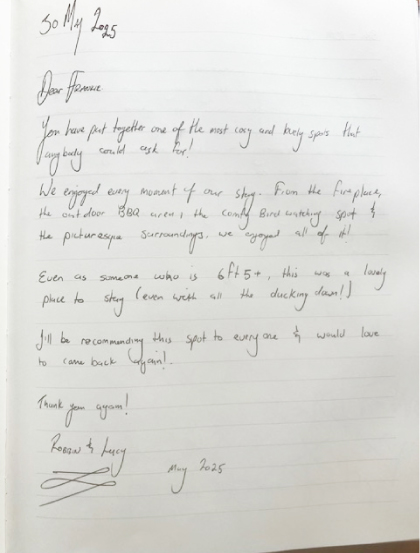 30 May 2025
Dear Frankie
You have put together one of the most cosy and lovely spots that
anybody could ask for!
We enjoyed every moment of our stay. From the fireplace,
the outdoor BBQ area, the comfy Bird watching spot &
the picturesque surroundings, we enjoyed all of it!
Even as someone who is 6ft5+, this was a lovely
place to stay (even with all the ducking down!)
I'll be recommending this spot to everyone & would love
to come back again!
Thank you again!
Robin & Lucy
May 2025